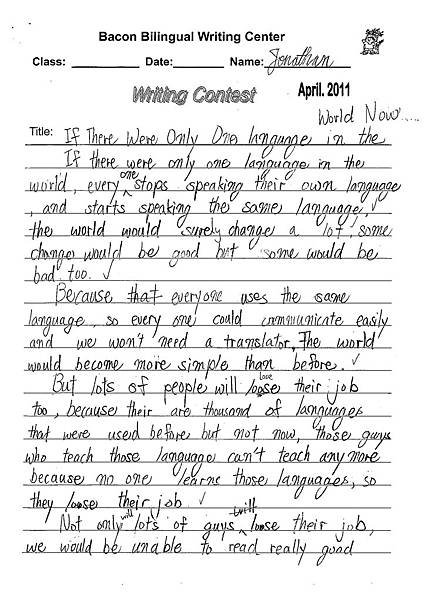 Bacon Bilingual Writing Center
Class: Date: Name: Jonathan
Writing Contest April. 2011
World Now.....
Title: If There Were Only One language in the
If there were only one language in the
world, every one stops speaking their own language
, and starts speaking the same language. ✓
the world would surely change a lot some
change would be good but some would be
bad too. ✓
Because that everyone uses the same
language, so every one could communicate easily
and we won't need a translator, The world
would become more simple than before. ✓
But lots of people will loose lose their job
too, because their are thousand of languages
that were used before but not now, those guys
who teach those language can't teach anymore
because no one learns those languages, so
they loose their job ✓
Not only will lots of guys will loose their job,
we would be unable to read really good